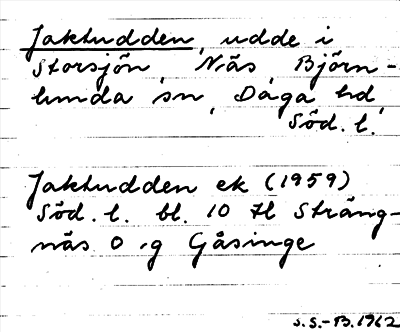 Jaktudden, udde i
Storsjön, Näs, Björn-
lunda sn, Daga hd,
Söd. l.
Jaktudden ek (1959)
Söd. l. bl. 10 Hl Sträng-
näs O .g Gåsinge
S.S.-B. 1962